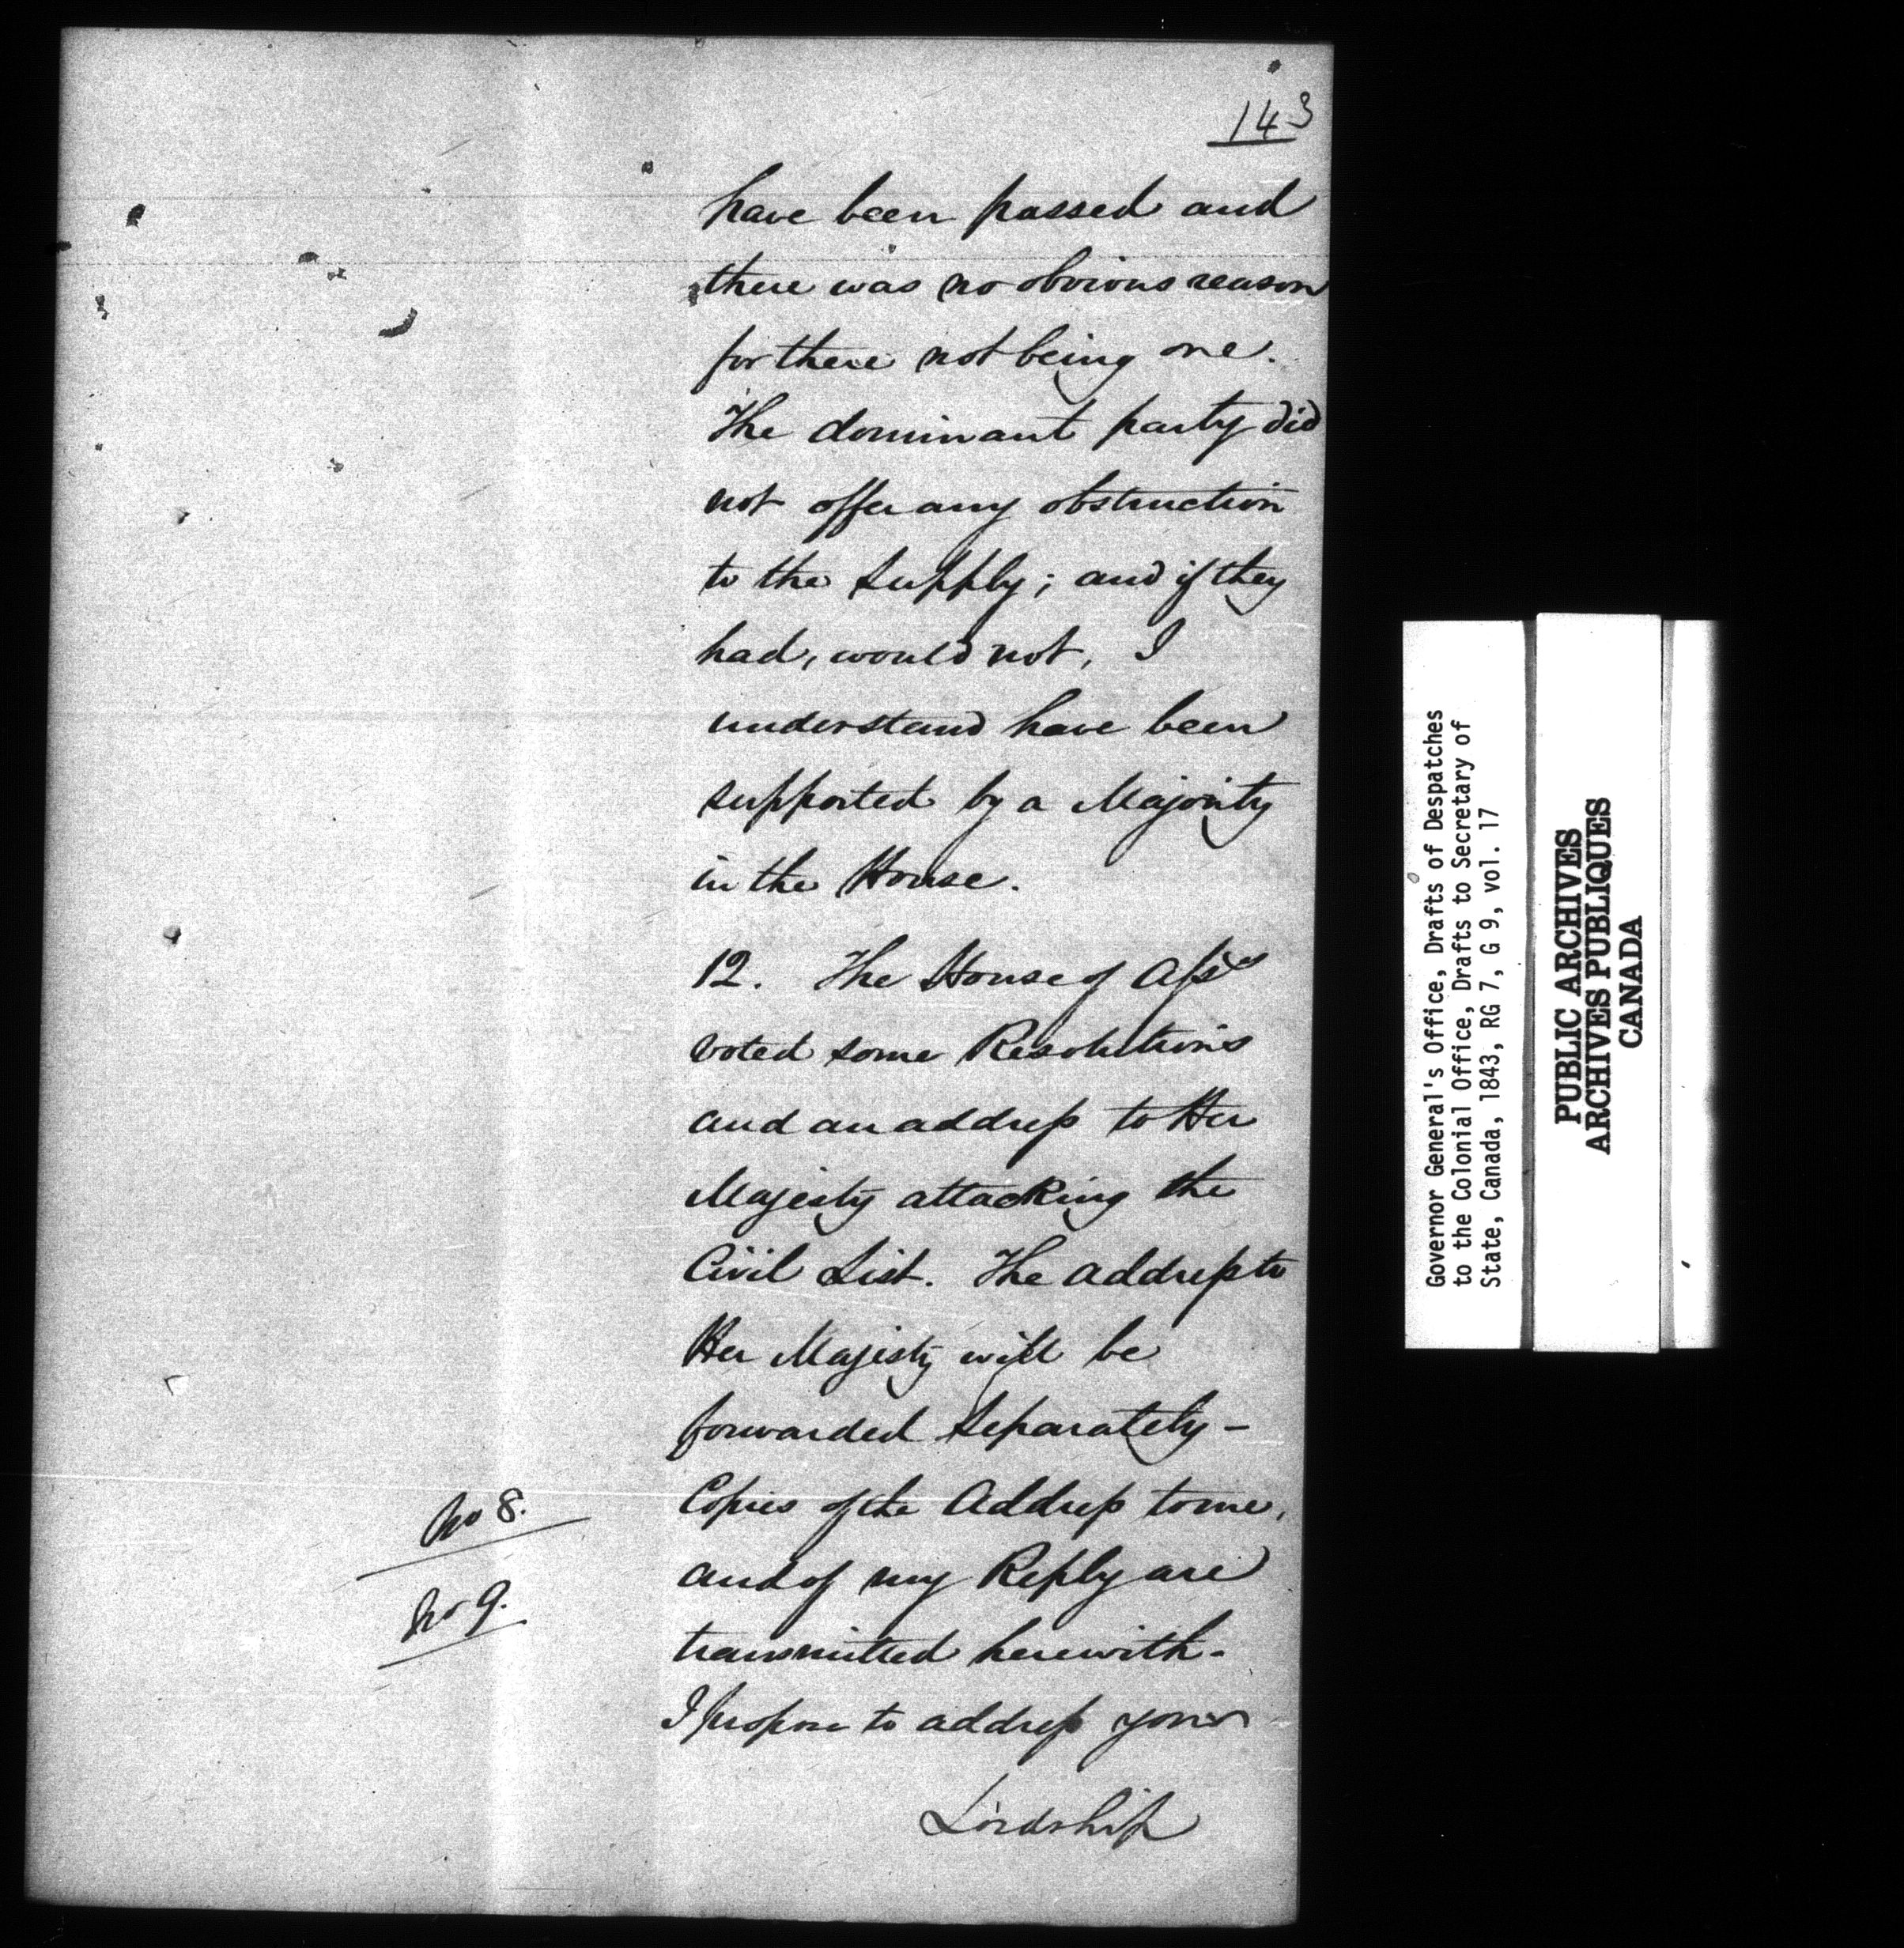 143
have been passed and
there was no obvious reason
for there not being one.
The dominant party did
not offer any obstruction
to the supply; and if they
had, would not, I
understand have been
supported by a Majority
in the House.
12. The House of Assy
voted some Resolutions
and an address to Her
Majesty attacking the
Civil List. The address to
Her Majesty will be
forwarded separately -
No 8.
Copies of the Address to me,
and of my Reply are
No 9.
transmitted herewith.
I propose to address your
Lordship
Governor General's Office, Drafts of Despatches
to the Colonial Office, Drafts to Secretary of
State, Canada, 1843, RG 7, G 9, vol. 17
PUBLIC ARCHIVES
ARCHIVES PUBLIQUES
CANADA